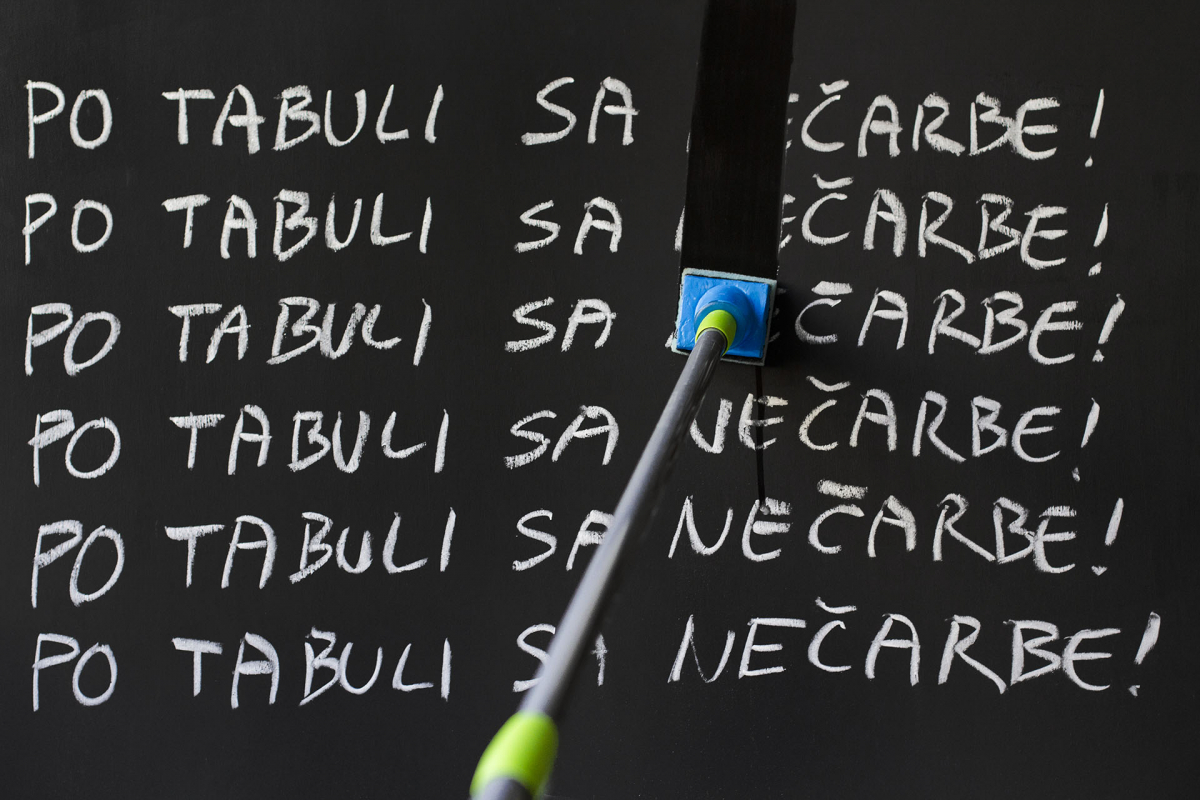 PO TABULI SA EČARBE!
PO TABULI SA EČARBE!
PO TABULI SA ČARBE!
PO TABULI SA NEČARBE!
PO TABULI SA NEČARBE!
PO TABULI SA NEČARBE!